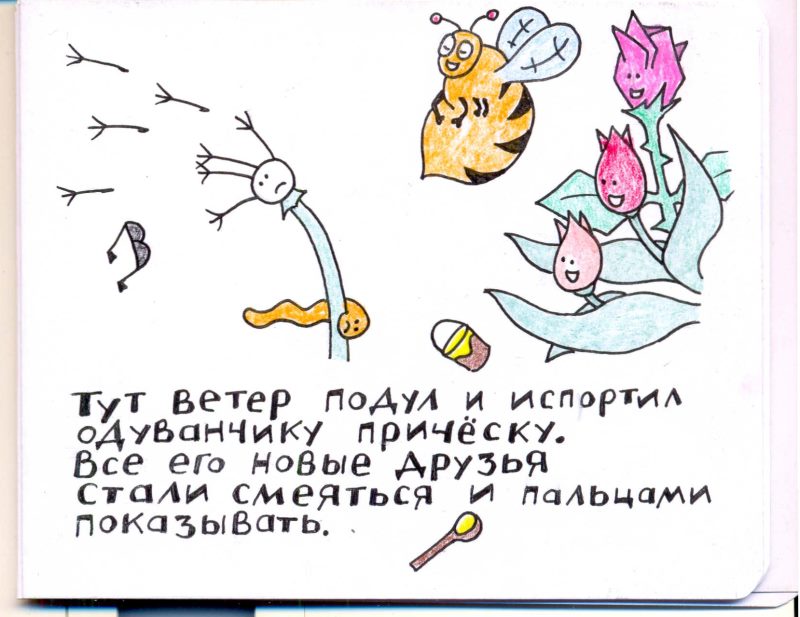 Тут ветер подул и испортил
одуванчику причёску.
Все его новые друзья
стали смеяться и пальцами
показывать.